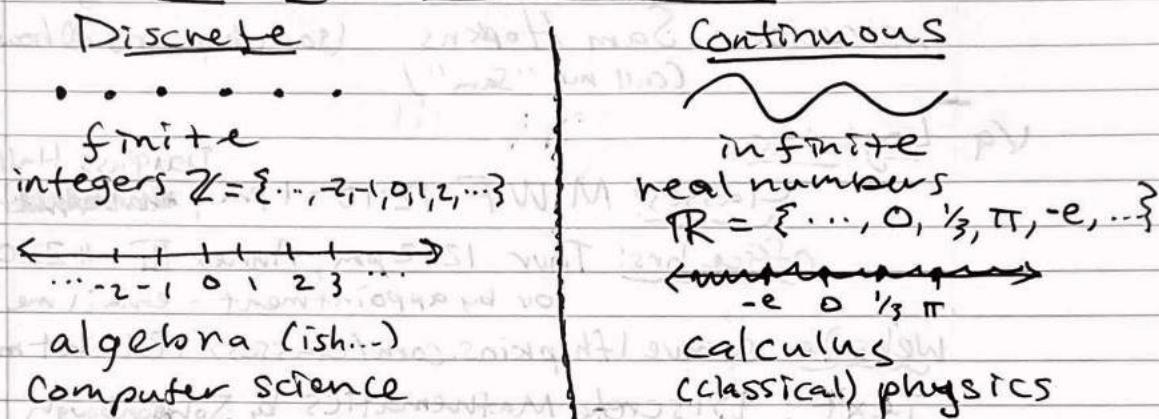 Discrete
finite
integers ℤ = {..., -2, -1, 0, 1, 2, ...}
... -2 -1 0 1 2 3 ...
algebra (ish...)
Computer science
Continuous
infinite
real numbers
ℝ = {..., 0, 1/3, π, -e, ...}
-e 0 1/3 π
calculus
(classical) physics